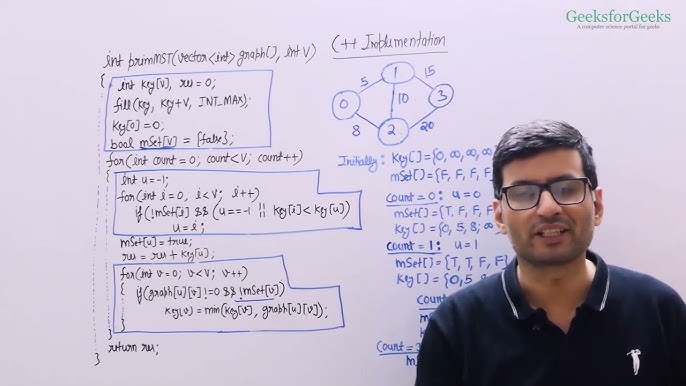 GeeksforGeeks
A computer science portal for geeks
int primMST(vector<int> graph[], int V)
{
int key[V], res = 0;
fill(key, key+V, INT_MAX);
key[0] = 0;
bool mSet[V] = {false};
for(int count = 0; count < V; count++)
{
int u = -1;
for(int i = 0; i < V; i++)
if(!mSet[i] && (u == -1 || key[i] < key[u]))
u = i;
mSet[u] = true;
res = res + key[u];
for(int v = 0; v < V; v++)
{
if(graph[u][v] != 0 && !mSet[v])
key(v) = min(key[v], graph[u][v]);
}
}
return res;
}
C++ Implementation
5
1
15
0
10
3
8
2
20
Initially: Key[] = {0, ∞, ∞, ∞
mSet[] = {F, F, F, F
count = 0: u = 0
mSet[] = {T, F, F, F
Key[] = {0, 5, 8, ∞
count = 1: u = 1
mSet[] = {T, T, F, F}
key[] = {0, 5
count
count = 3